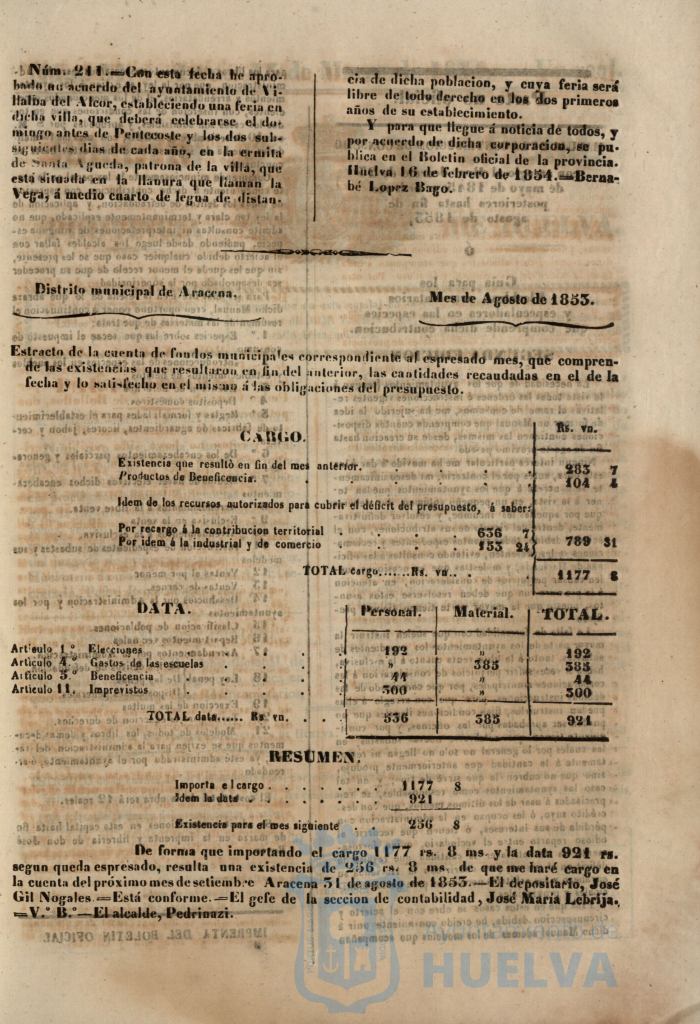 Núm. 241.—Con esta fecha he apro-
bado un acuerdo del ayuntamiento de Vi-
llalba del Alcor, estableciendo una feria en
dicha villa, que deberá celebrarse el do-
mingo antes de Pentecoste y los dos sub-
siguientes dias de cada año, en la ermita
de Santa Agueda, patrona de la villa, que
está situada en la llanura que llaman la
Vega, á medio cuarto de legua de distan-
cia de dicha poblacion, y cuya feria será
libre de todo derecho en los dos primeros
años de su establecimiento.
Y para que llegue á noticia de todos, y
por acuerdo de dicha corporacion, se pu-
blica en el Boletin oficial de la provincia.
Huelva 16 de febrero de 1854.—Berna-
bé Lopez Bago.
Distrito municipal de Aracena.
Mes de Agosto de 1853.
Estracto de la cuenta de fondos municipales correspondiente al espresado mes, que compren-
de las existencias que resultaron en fin del anterior, las cantidades recaudadas en el de la
fecha y lo satisfecho en el mismo á las obligaciones del presupuesto.
CARGO.
Rs. vn.
Existencia que resultò en fin del mes anterior. . . . . 283 7
Productos de Beneficencia. . . . . . . 104 4
Idem de los recursos autorizados para cubrir el déficit del presupuesto, á saber:
Por recargo á la contribucion territorial . . . . 636 7
Por idem á la industrial y de comercio . . . . 153 24 789 31
TOTAL cargo.......Rs. vn. . . . 1177 8
DATA.
Personal. Material. TOTAL.
Articulo 1.° Elecciones . . . . . 192 » 192
Articulo 4.° Gastos de las escuelas . . . . » 385 385
Articulo 5.° Beneficencia . . . . 44 » 44
Articulo 11. Imprevistos . . . . 300 » 300
TOTAL data...... Rs. vn. . . . 536 385 921
RESUMEN.
Importa el cargo . . . . . . . 1177 8
Idem la data . . . . . . . 921
Existencia para el mes siguiente . . . 256 8
De forma que importando el cargo 1177 rs. 8 ms. y la data 921 rs.
segun queda espresado, resulta una existencia de 256 rs. 8 ms. de que me haré cargo en
la cuenta del próximo mes de setiembre Aracena 31 de agosto de 1853.—El depositario, José
Gil Nogales.—Está conforme.—El gefe de la seccion de contabilidad, José María Lebrija.
—V.° B.°—El alcalde, Pedrinazi.
HUELVA